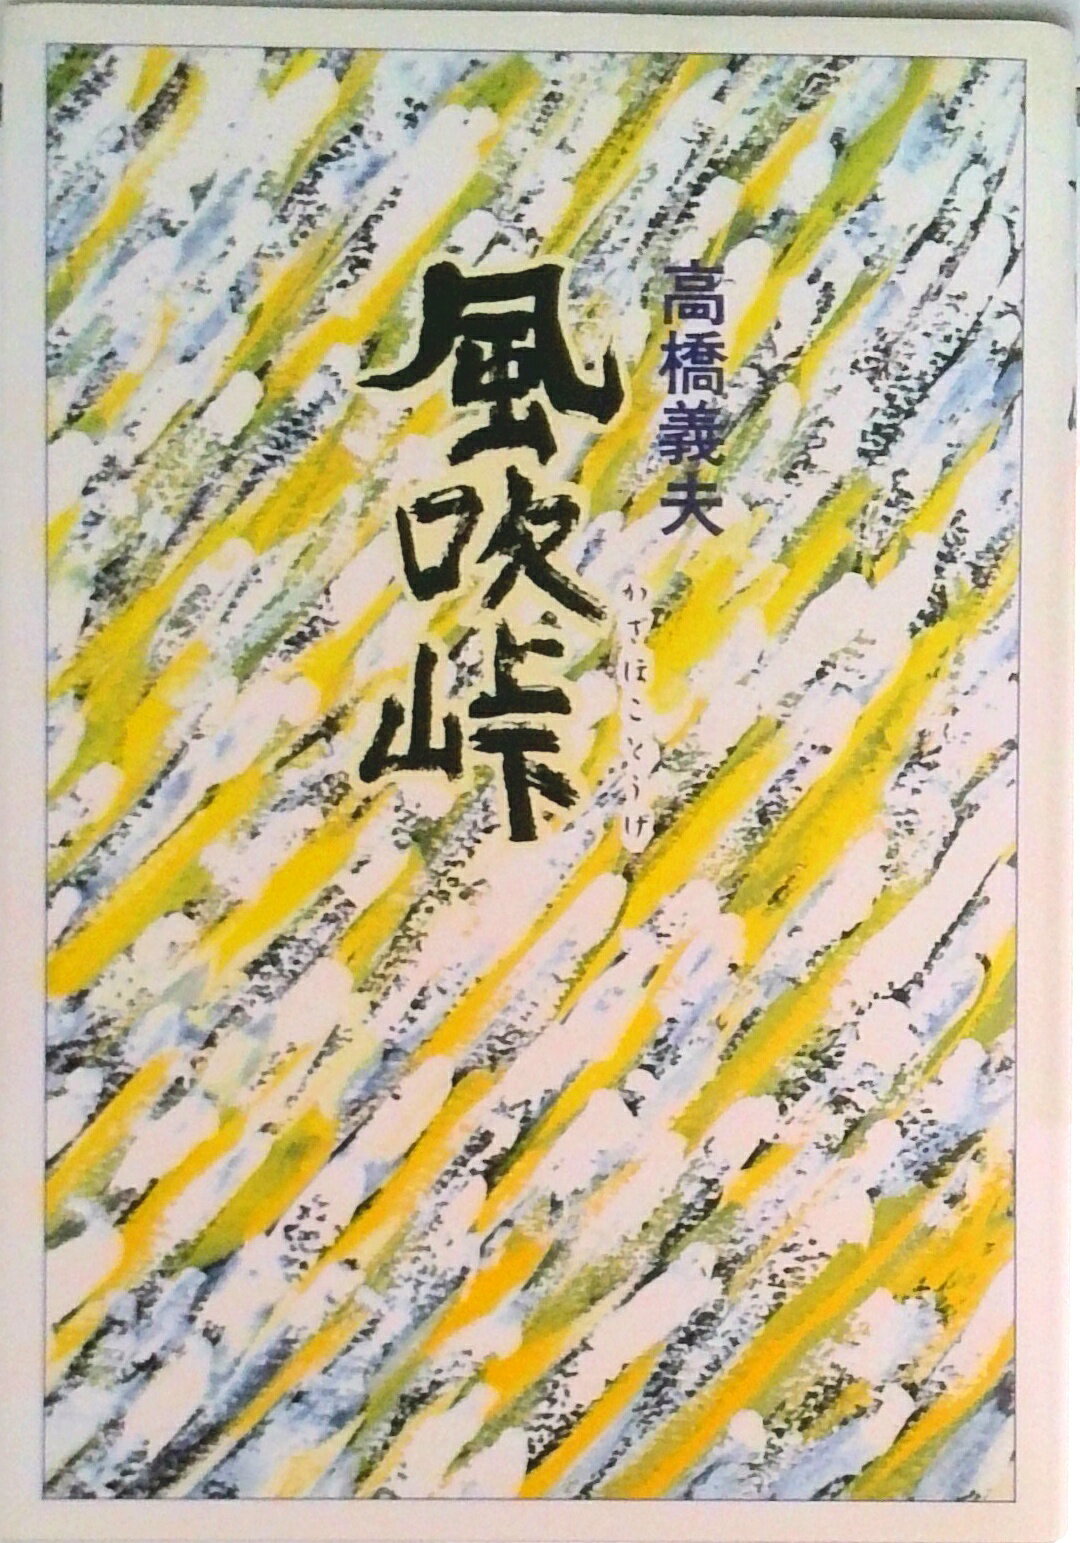 高橋義夫
風吹峠
かざほことうげ